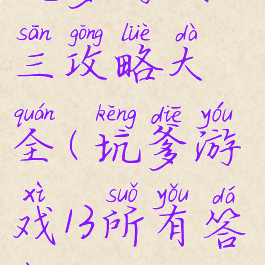 sān gōng lüè dà
三攻略大
quán kēng diē yóu
全(坑爹游
xì suǒ yǒu dá
戏13所有答